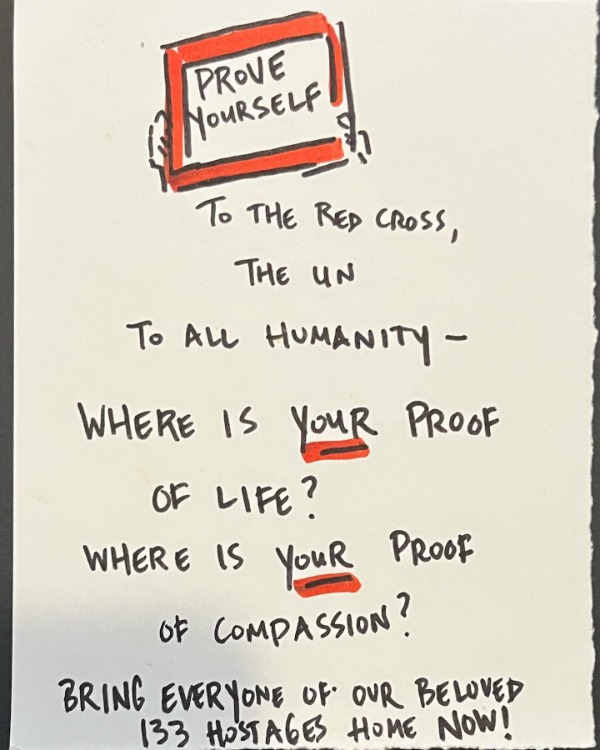 PROVE
YOURSELF
To THE RED CROSS,
THE UN
To ALL HUMANITY –
WHERE IS YOUR PROOF
OF LIFE?
WHERE IS YOUR PROOF
OF COMPASSION?
BRING EVERYONE OF OUR BELOVED
133 HOSTAGES HOME NOW!